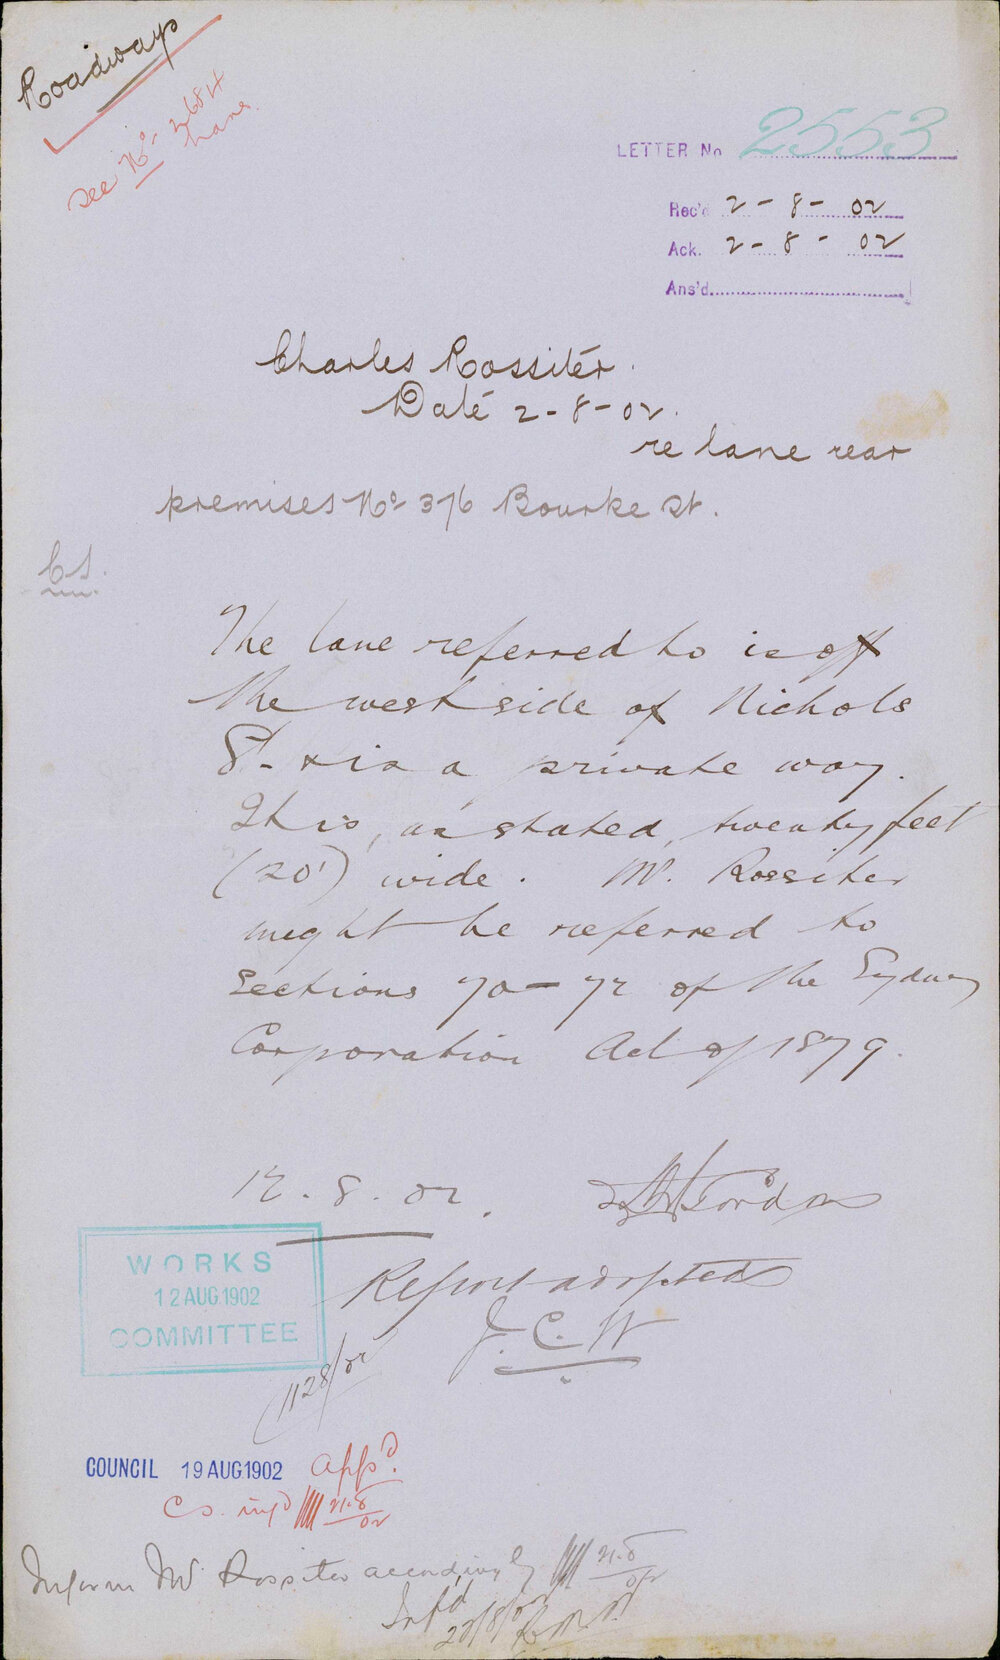 Roadways
See No. 2684
Lane
LETTER No 2553
Rec'd 2-8-02
Ack. 2-8-02
Ans'd
Charles Rossiter.
Date 2-8-02.
re lane rear
premises No. 376 Bourke St.
CS.
The lane referred to is off
the west side of Nichols
St- & is a private way.
It is, as stated, twenty feet
(20') wide. Mr. Rossiter
might be referred to
Sections 70-72 of the Sydney
Corporation Act of 1879.
12.8.02.
Gordon
Report adopted
J.C.W
WORKS
12 AUG. 1902
COMMITTEE
1128/02
COUNCIL 19 AUG 1902 App'd.
C.S. inf'd 21.8/02
Inform Mr Rossiter accordingly 21.8/02
Inf'd
22/8/02